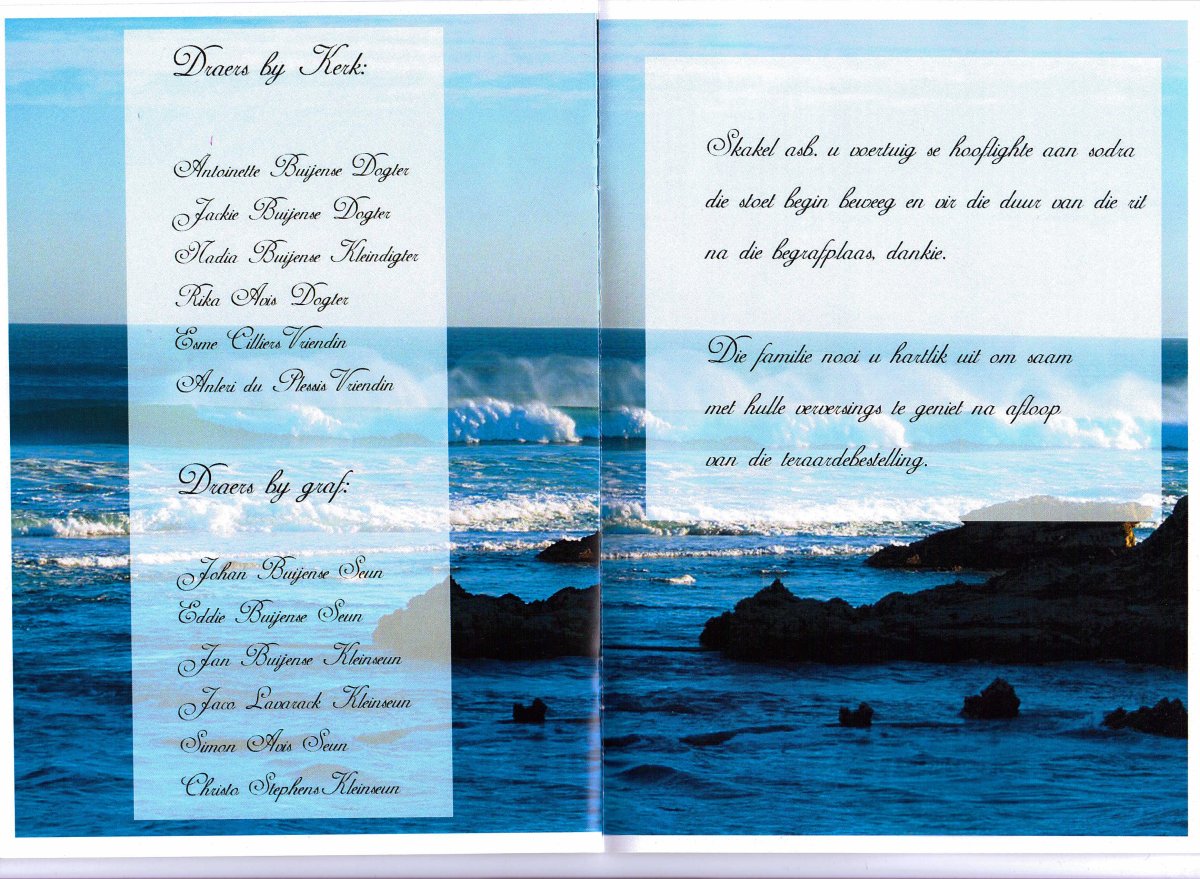 Draers by Kerk:
Antoinette Buijense Dogter
Jackie Buijense Dogter
Nadia Buijense Kleindigter
Rika Avis Dogter
Esme Cilliers Vriendin
Anleri du Plessis Vriendin
Draers by graf:
Johan Buijense Seun
Eddie Buijense Seun
Jan Buijense Kleinseun
Jaco Lavarack Kleinseun
Simon Avis Seun
Christo Stephens Kleinseun
Skakel asb. u voertuig se hooflighte aan sodra
die stoet begin beweeg en vir die duur van die rit
na die begrafplaas, dankie.
Die familie nooi u hartlik uit om saam
met hulle verversings te geniet na afloop
van die teraardebestelling.